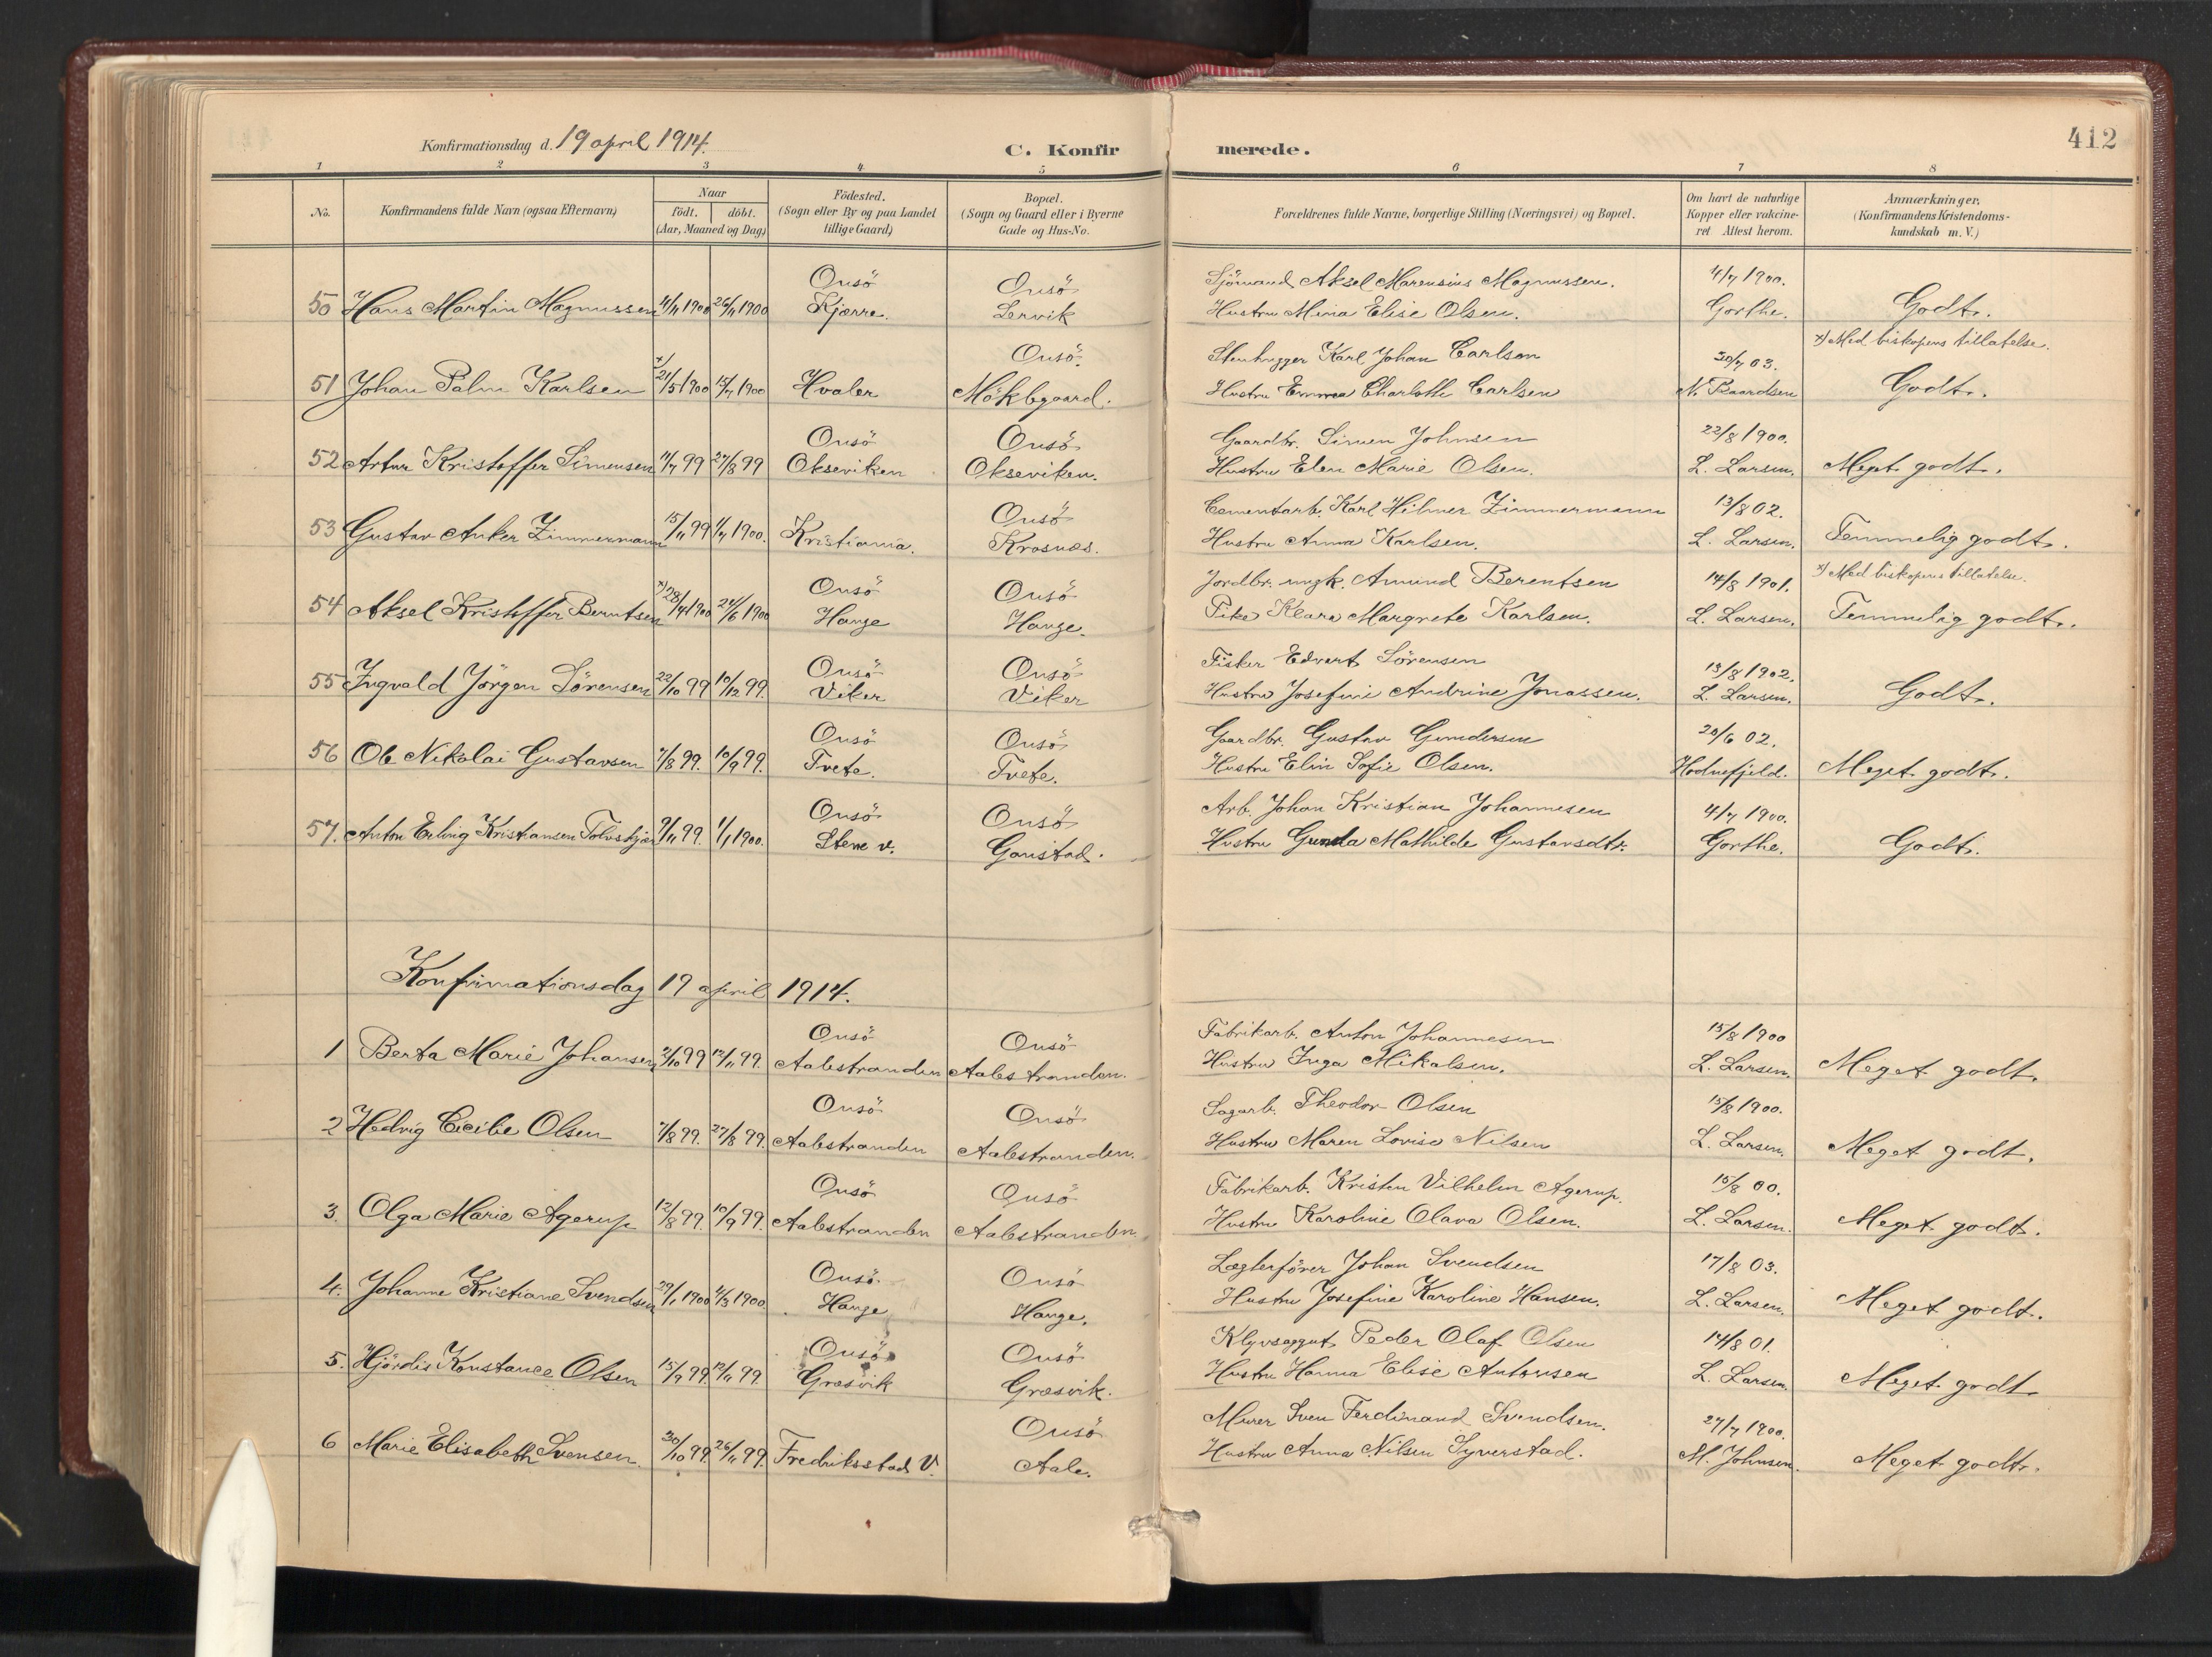 Konfirmationsdag d. 19 april 1914.
C. Konfirmerede.
412
1 2 3 4 5 6 7 8
No.
Konfirmandens fulde Navn (ogsaa Efternavn)
Naar
födt. döbt.
(Aar, Maaned og Dag)
Födested.
(Sogn eller By og paa Landet
tillige Gaard)
Bopæl.
(Sogn og Gaard eller i Byerne
Gade og Hus-No.
Forældrenes fulde Navne, borgerlige Stilling (Næringsvei) og Bopæl.
Om havt de naturlige
Kopper eller vakcine-
ret Attest herom.
Anmærkninger.
(Konfirmandens Kristendoms-
kundskab m. V.)
Onsö Onsö Sjömand Aksel Marensius Magnussen. 4/7 1900.
50 Hans Martin Magnussen 4/11 1900 26/11 1900 Kjærre. Lervik Hustru Mina Elise Olsen. Gorthe. Godt.
Onsö Stenhugger Karl Johan Carlson 30/7 03. x) Med biskopens tillatelse.
51 Johan Palm Karlsen x) 21/5 1900 15/7 1900 Hvaler Mökbegaard. Hustru Emma Charlotte Carlsen N. Baardsen Godt.
Onsö Onsö Gaardbr. Simen Johnsen 22/8 1900.
52 Artur Kristoffer Simensen 11/7 99 27/8 99 Okseviken Okseviken. Hustru Elen Marie Olsen. L. Larsen. Meget godt.
Onsö Cementarb. Karl Hilmer Zimmermann 13/8 02.
53 Gustav Anker Zimmermann 15/11 99 1/7 1900. Kristiania. Krosnæs. Hustru Anna Karlsen. L. Larsen. Temmelig godt.
Onsö Onsö Jordbr. ungk. Amund Berentsen 14/8 1901. x) Med biskopens tillatelse.
54 Aksel Kristoffer Berntsen x) 28/4 1900 24/6 1900 Hauge Hauge. Pike Klara Margrete Karlsen. L. Larsen. Temmelig godt.
Onsö Onsö Fisker Edvart Sörensen 13/8 1902.
55 Ingvald Jörgen Sörensen 22/10 99 10/12 99. Viker Viker Hustru Josefine Andrine Jonassen. L. Larsen. Godt.
Onsö Onsö Gaardbr. Gustav Gundersen 20/6 02.
56 Ole Nikolai Gustavsen 7/8 99. 10/9 99. Tvete. Tvete. Hustru Elin Sofie Olsen. Hodnefjeld. Meget godt.
Onsö Onsö Arb. Johan Kristian Johannesen 4/7 1900.
57. Anton Erling Kristiansen Tolvskjær 9/11 99. 1/1 1900. Stene v. Gaustad. Hustru Gunda Mathilde Gustavsdtr. Gorthe. Godt.
Konfirmationsdag 19 april 1914.
Onsö Onsö Fabrikarb. Anton Johannesen 15/8 1900
1 Berta Marie Johansen 2/10 99 12/11 99. Aalestranden Aalestranden. Hustru Inga Mikalsen. L. Larsen. Meget godt.
Onsö Onsö Sagarb. Theodor Olsen 15/8 1900.
2 Hedvig Cicilie Olsen 7/8 99. 27/8 99. Aalestranden Aalestranden. Hustru Maren Lovise Nilsen L. Larsen. Meget godt.
Onsö Onsö Fabrikarb. Kristen Vilhelm Agerup. 15/8 00.
3. Olga Marie Agerup 12/8 99. 10/9 99. Aalestranden Aalestranden. Hustru Karoline Olava Olsen. L. Larsen. Meget godt.
Onsö Onsö Lægterförer Johan Svendsen 17/8 03.
4. Johanne Kristiane Svendsen 29/1 1900 4/3 1900. Hauge Hauge. Hustru Josefine Karoline Hansen. L. Larsen. Meget godt.
Onsö Onsö Peder Olaf Olsen 14/8 01.
5. Hjördis Konstance Olsen 15/9 99. 12/11 99. Græsvik Græsvik. Hustru Hanna Elise Antonsen L. Larsen. Meget godt
Onsö Murer Sven Ferdinand Svendsen. 27/7 1900.
6 Marie Elisabeth Svensen. 30/10 99. 26/11 99. Fredriksstad V. Aale. Hustru Anna Nilsen Syverstad. M. Johnsen. Meget godt.